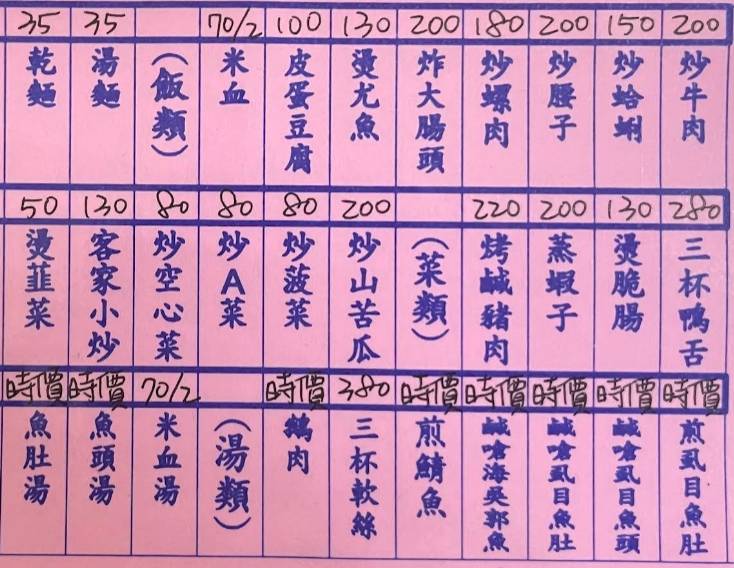 200 炒牛肉
150 炒蛤蜊
200 炒腰子
180 炒螺肉
200 炸大腸頭
130 燙尤魚
100 皮蛋豆腐
70/2 米血
(飯類)
35 湯麵
35 乾麵
280 三杯鴨舌
130 燙脆腸
200 蒸蝦子
220 烤鹹豬肉
(菜類)
200 炒山苦瓜
80 炒菠菜
80 炒A菜
80 炒空心菜
130 客家小炒
50 燙韮菜
時價 煎虱目魚肚
時價 鹹嗆虱目魚頭
時價 鹹嗆虱目魚肚
時價 鹹嗆海吳郭魚
時價 煎鯖魚
380 三杯軟絲
時價 鵝肉
(湯類)
70/2 米血湯
時價 魚頭湯
時價 魚肚湯